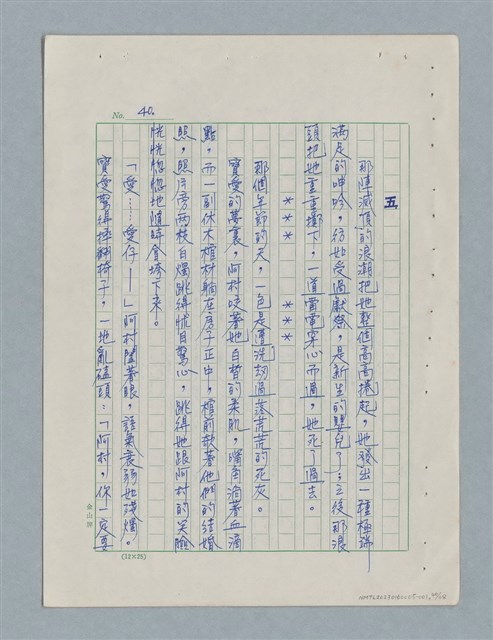 No. 40.
五
那陣滅頂的浪潮把她整個高高捲起，她發出一種極端
滿足的呻吟，彷如受過獻祭，是新生的嬰兒了；之後那浪
頭把她重重擲下，一道雷電穿心而過，她死了過去。
＊＊＊　＊＊＊
那個年節的天，一色是遭洗劫過落荒荒的死灰。
寶愛的夢裏，阿村咬著她白皙的柔肌，嘴角滴著血滴
點，而一副休大棺材躺在房子正中，棺前放著他們的結婚
照，照片旁兩枝白燭跳得怵目驚心，跳得她跟阿村的笑臉
恍恍惚惚地隨時會垮下來。
「愛⋯⋯愛仔——」阿村閉著眼，語氣衰弱如殘燭。
寶愛驚得摔翻椅子，一地亂磕頭：「阿村，你一定要
金山牌
(12×25)